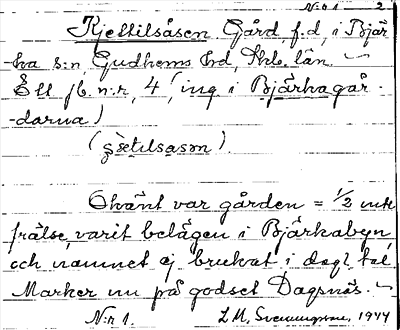 N:o 1 2
Kjettilsåsen Gård, f.d, i Bjär
-ka s:n, Gudhems hd, Skb. län.
Ett jb. n:r, 4 (ing i Bjärkagår-
-darna)
(
Okänt var gården = 1/2 mtl
frälse, varit belägen i Bjärkabyn
och namnet ej brukat i dagl. tal
Marker nu på godset Dagsnäs.
N:r 1. L.M. Svenungsson, 1944